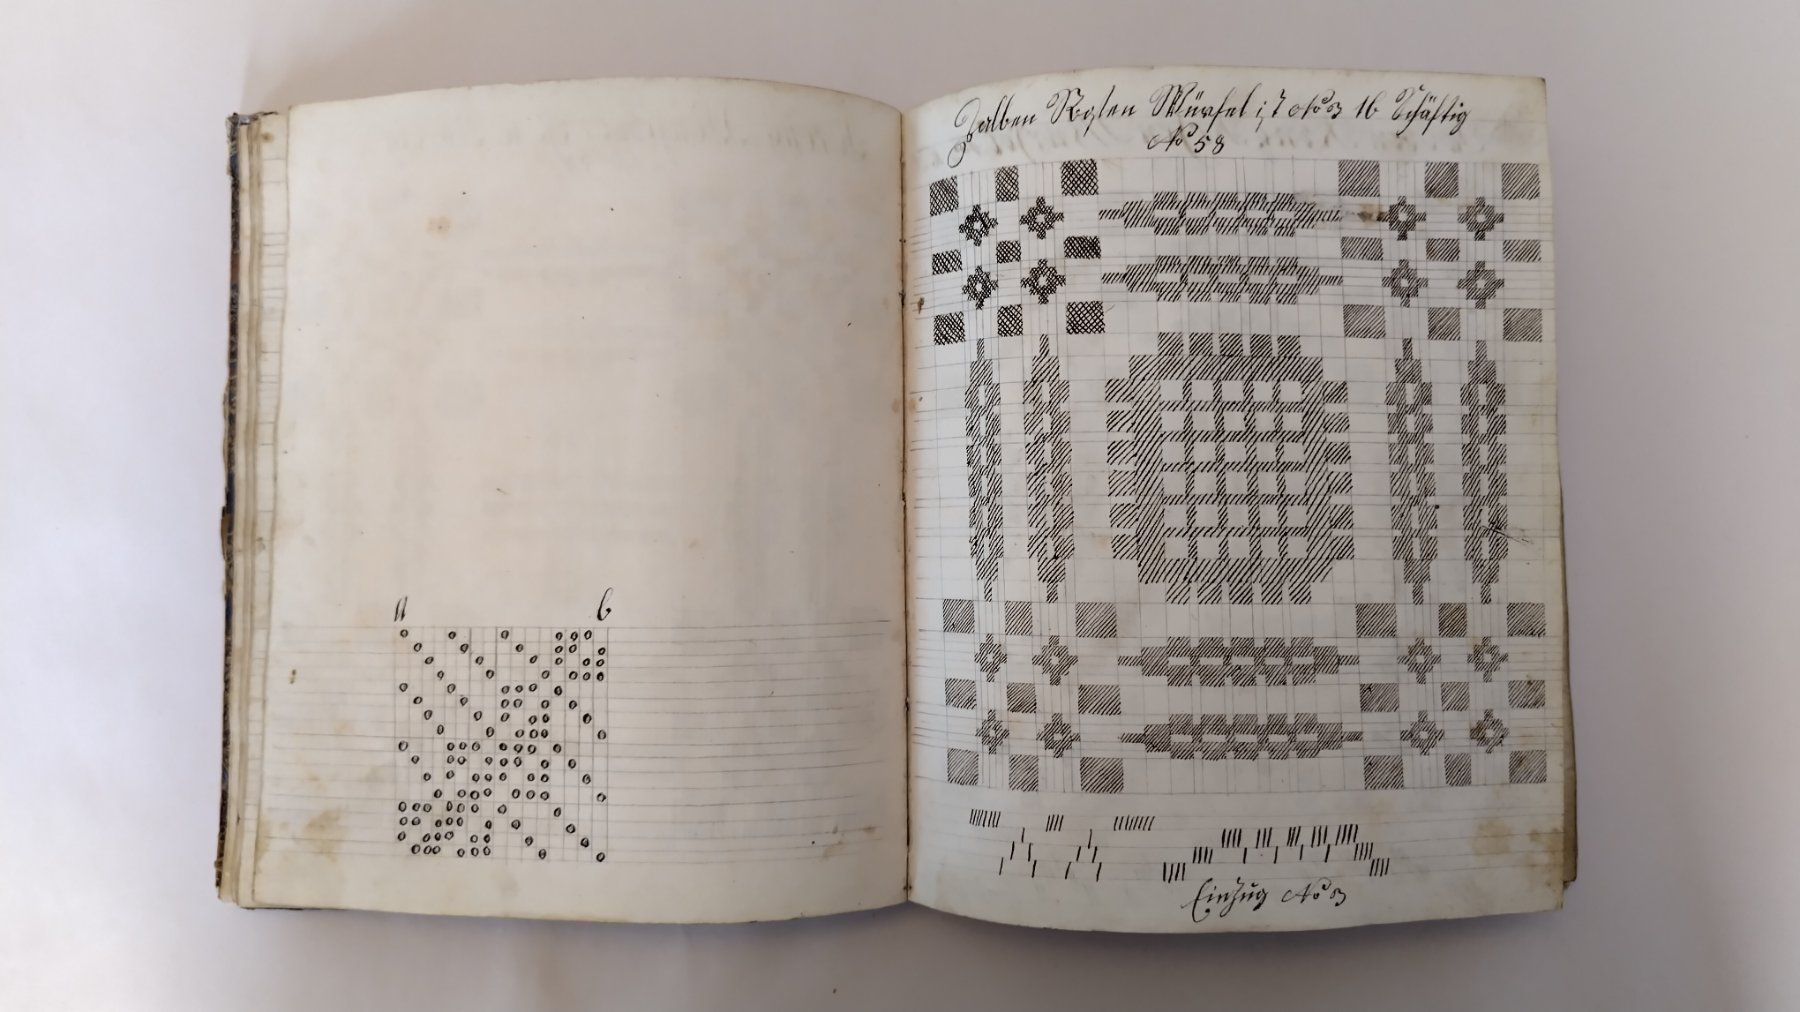 Halben Rosen Würfel ist No 3 16 Schäftig
No 58
a b
Einzug No 3